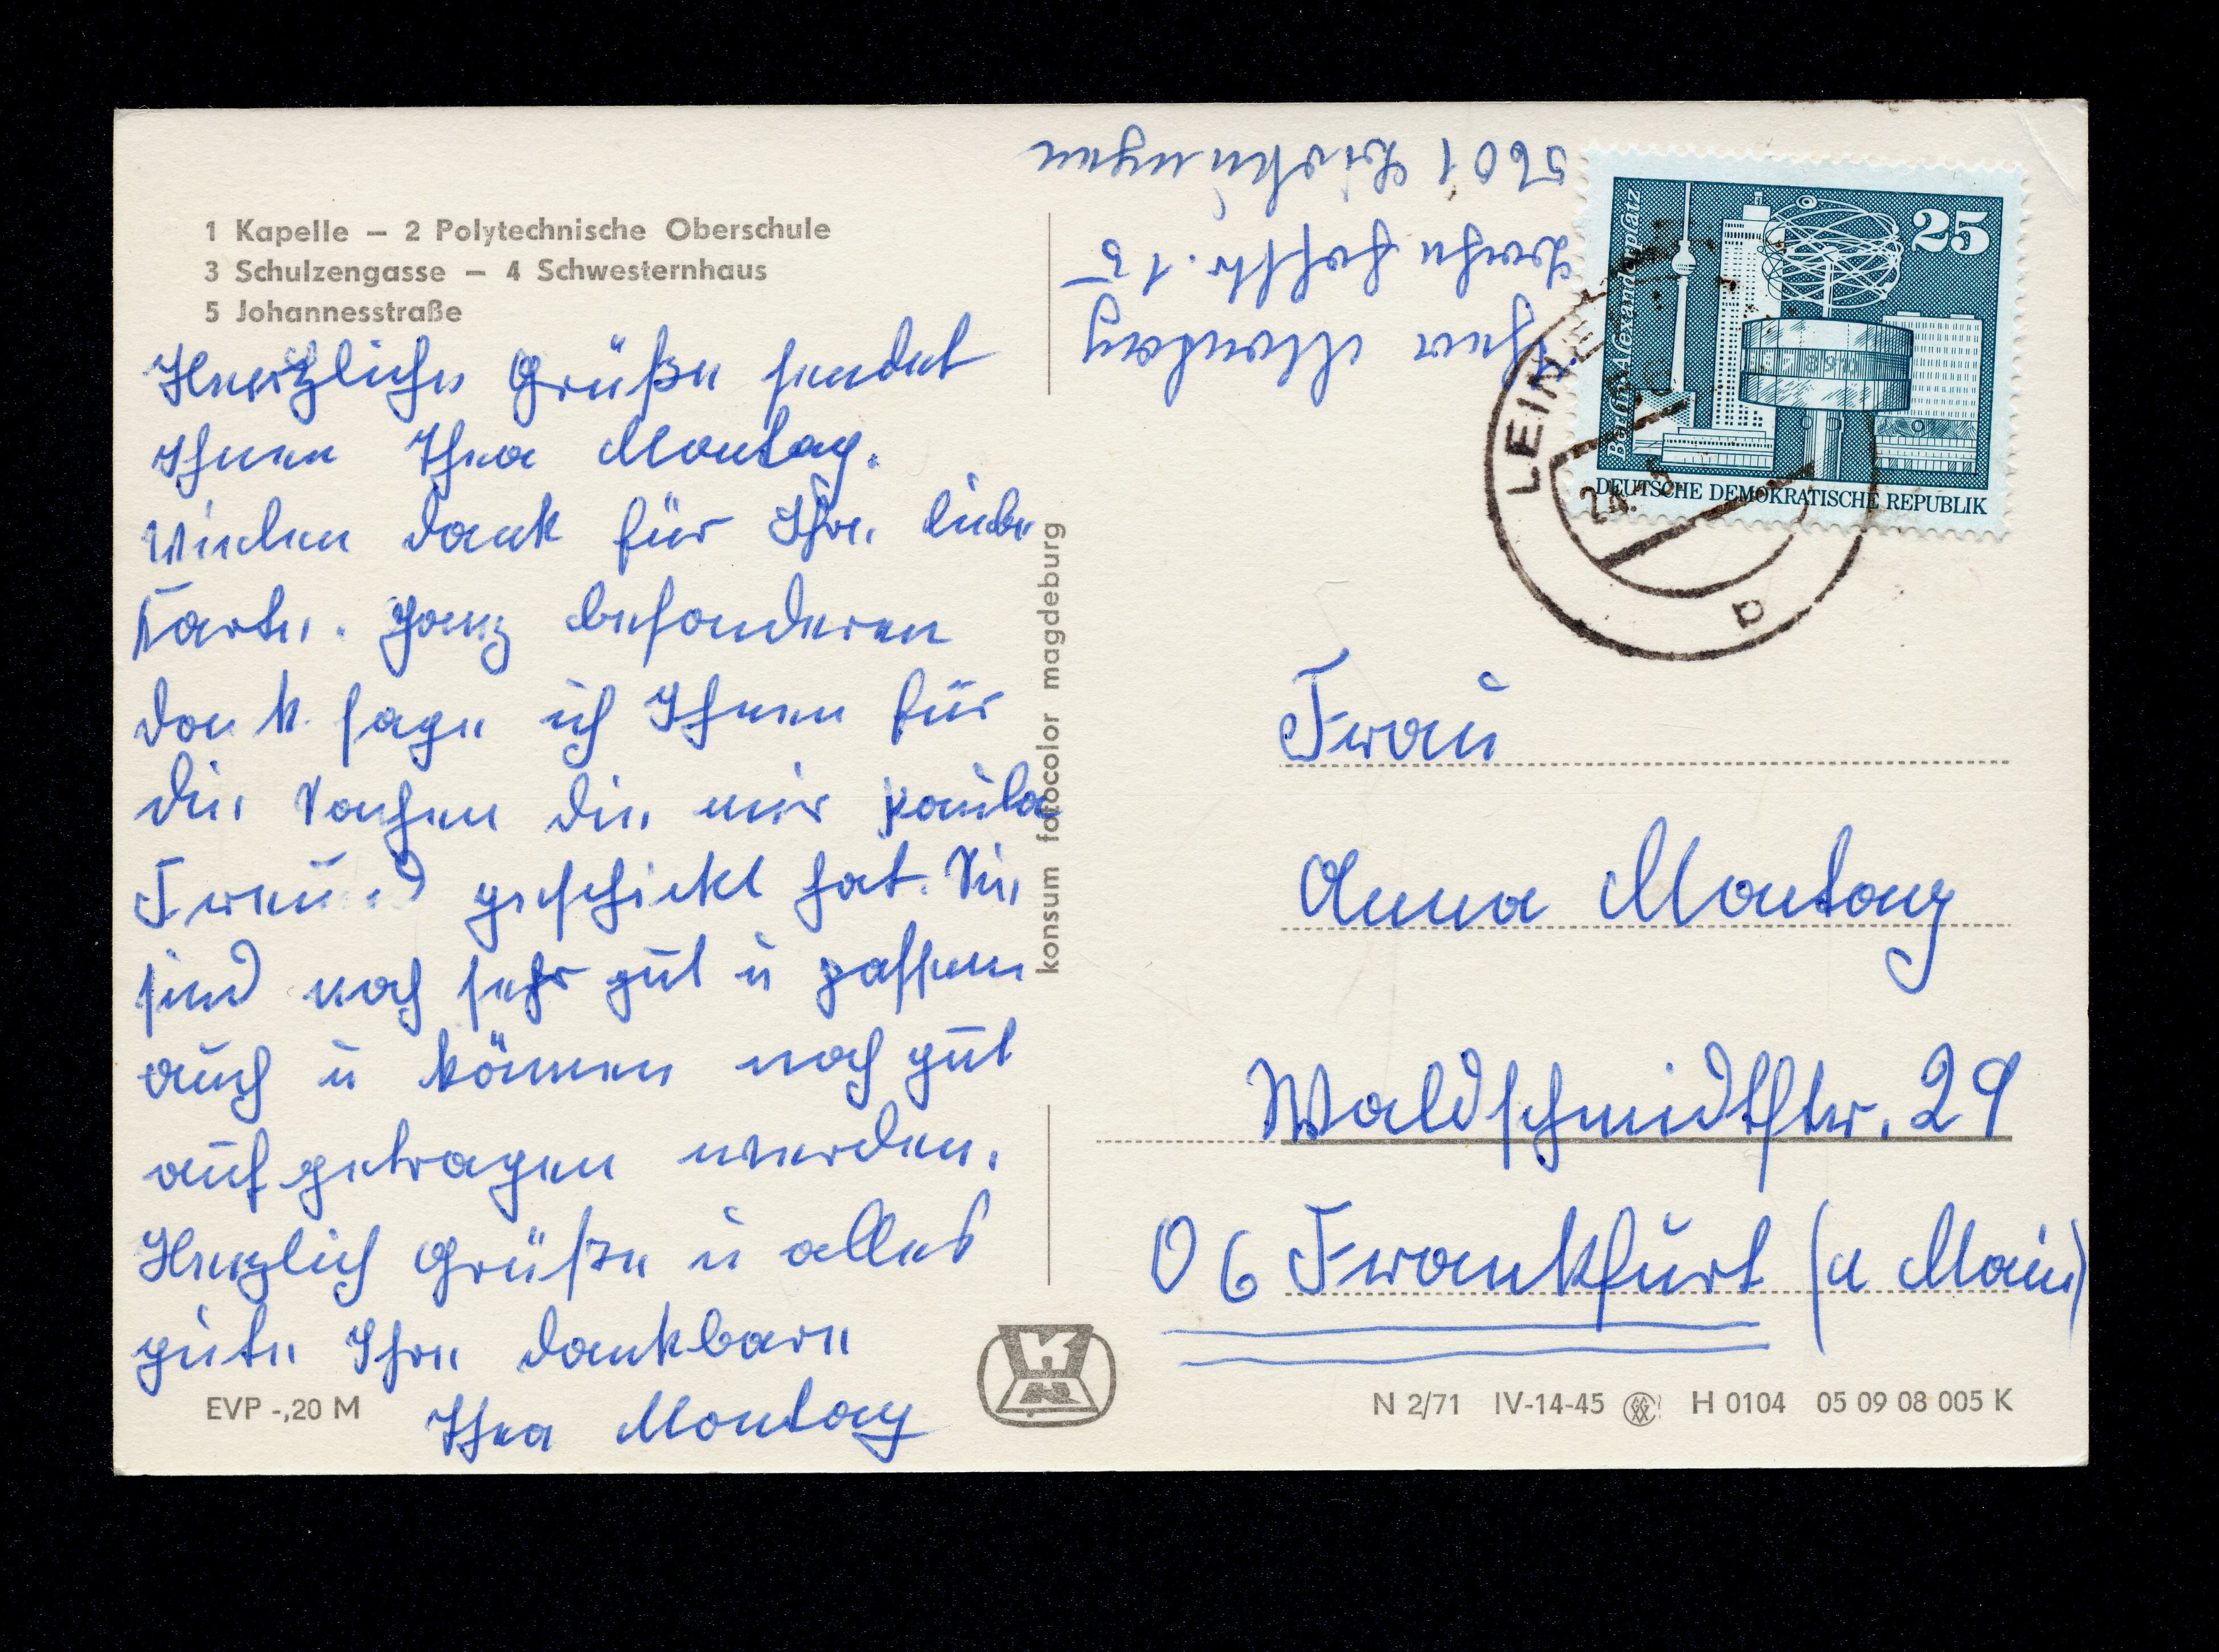 1 Kapelle – 2 Polytechnische Oberschule
3 Schulzengasse – 4 Schwesternhaus
5 Johannesstraße
Herzliche Grüße sendet
Ihnen Thea Montag.
Vielen Dank für Ihre liebe
Karte. Ganz besonderen
Dank sage ich Ihnen für
die Sachen die mir Paula
Freund geschickt hat. Sie
sind noch sehr gut u passen
auch u können noch gut
aufgetragen werden.
Herzlich Grüße u alles
gute Ihre dankbare
Thea Montag
EVP -,20 M
konsum fotocolor magdeburg
Thea Montag
str. 15
5601
25
Berlin-Alexanderplatz
DEUTSCHE DEMOKRATISCHE REPUBLIK
LEINE
Frau
Anna Montag
Waldschmidtstr. 29
06 Frankfurt (a Main)
N 2/71 IV-14-45 H 0104 05 09 08 005 K